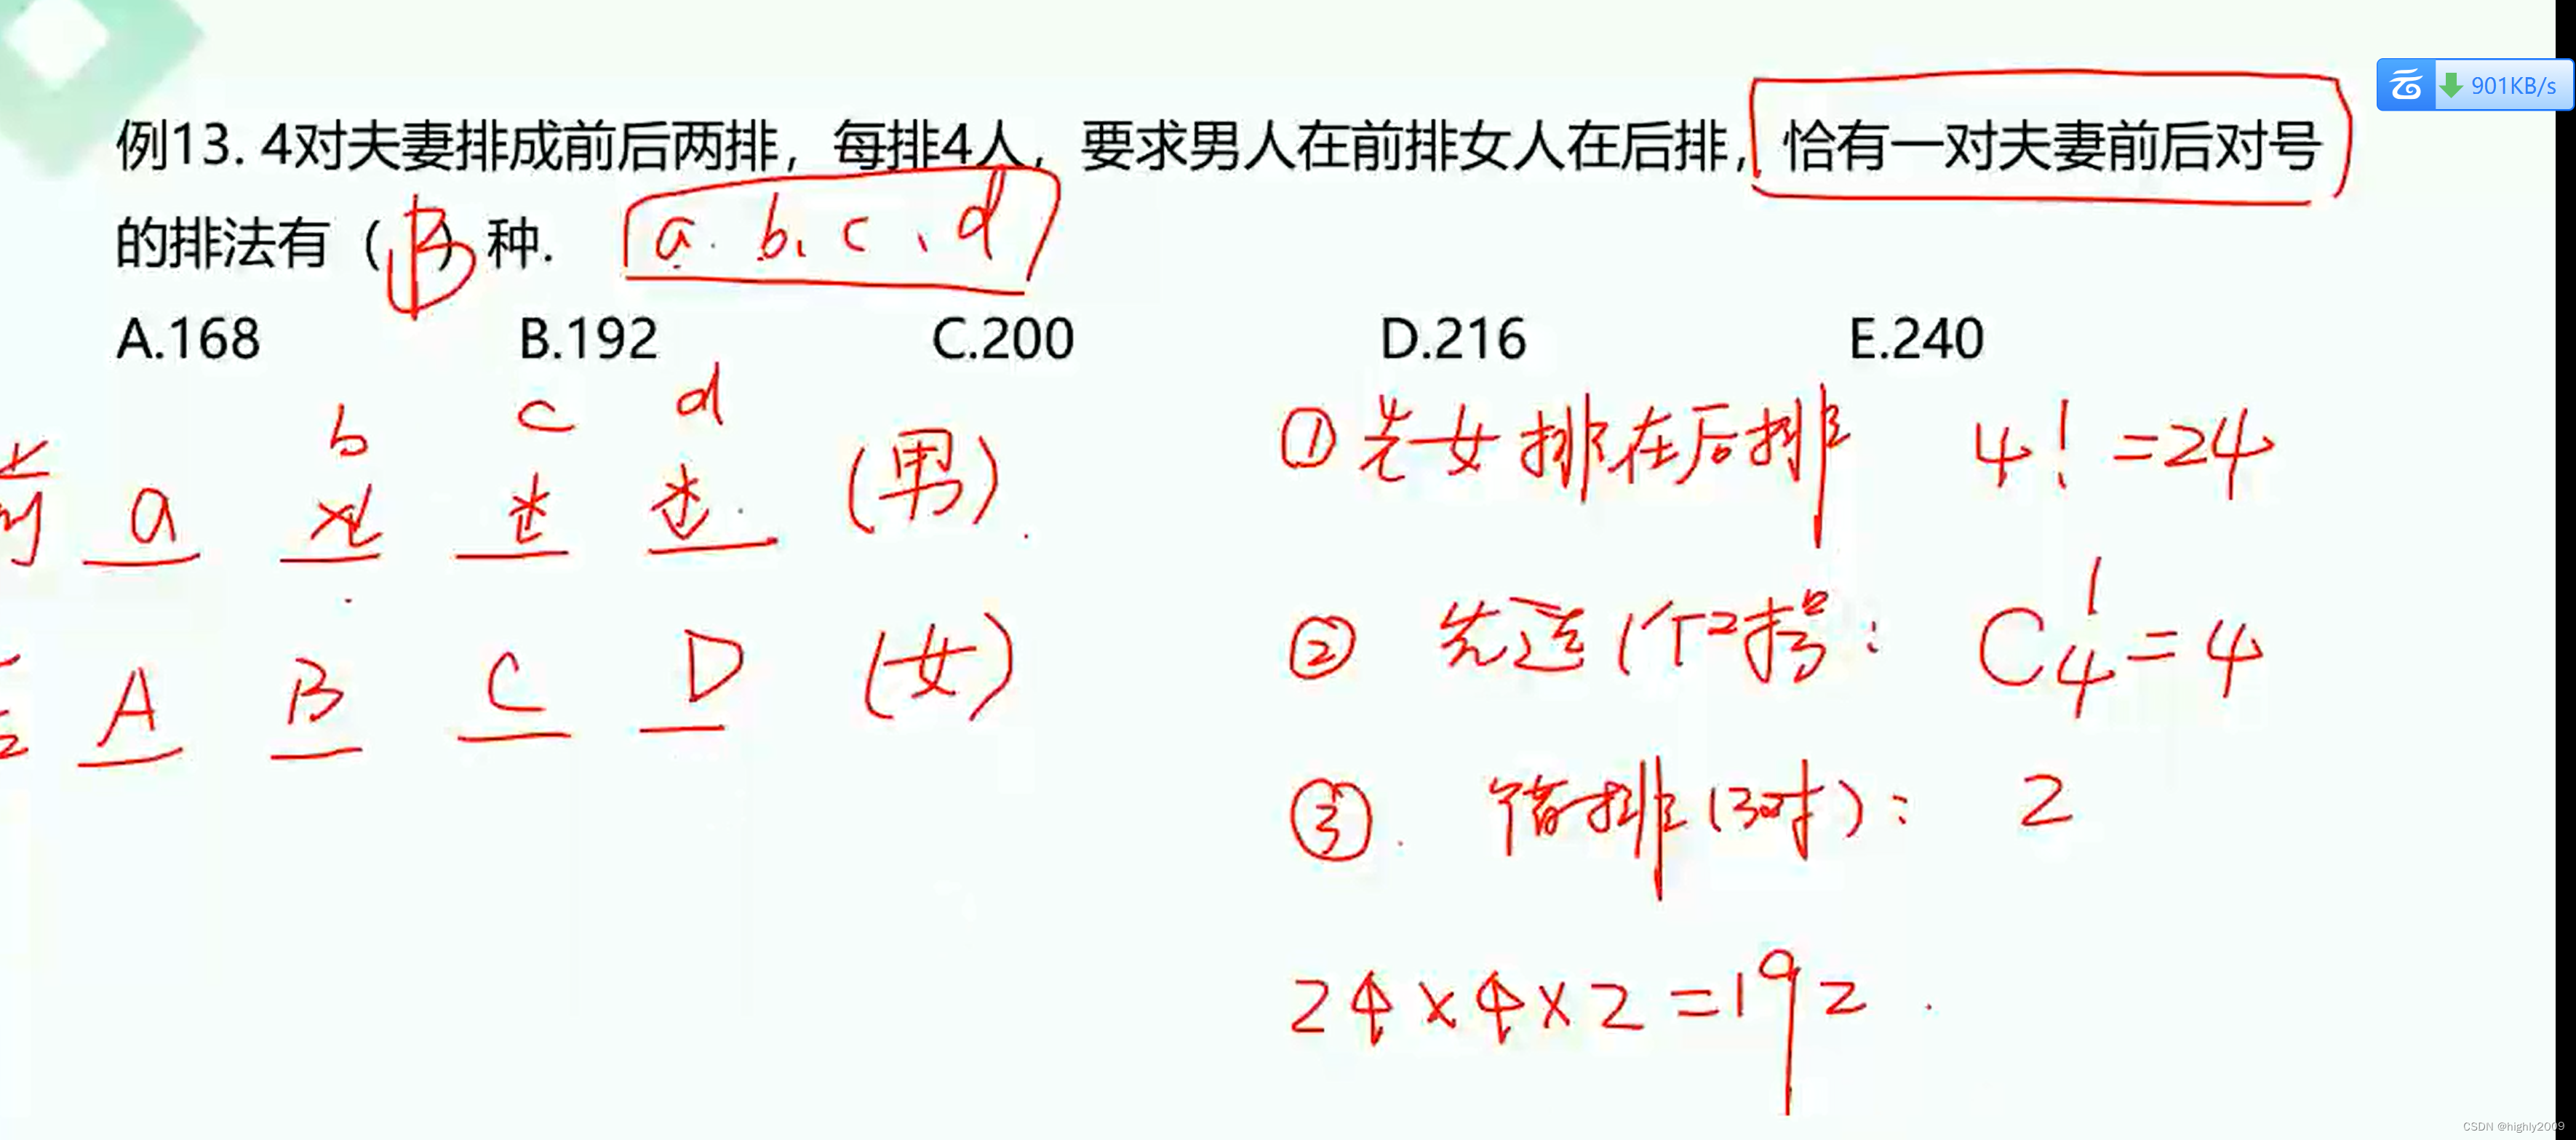 901KB/s
例13. 4对夫妻排成前后两排，每排4人，要求男人在前排女人在后排，恰有一对夫妻前后对号
的排法有（B）种.
a. b、c、d
A.168 B.192 C.200 D.216 E.240
b c d
前 a (男)
A B C D (女)
① 先女排在后排 4! =24
② 先选1个对号: C₄¹=4
③. 错排(3对): 2
24×4×2=192.
CSDN @highly2009